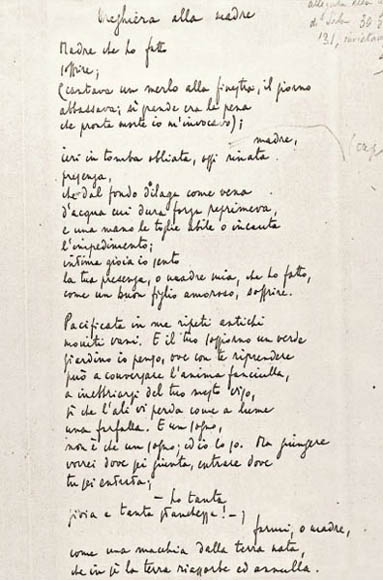 Preghiera alla madre
Madre che ho fatto
soffrire;
(cantava un merlo alla finestra, il giorno
abbassava; sì grande era la pena
che pronta morte io m'invocavo);
madre,
ieri in tomba obliata, oggi rinata
presenza,
che dal fondo dilaga come vena
d'acqua cui dura forza reprimeva,
e una mano le toglie abile o incauta
l'impedimento;
intima gioia io sento
la tua presenza, o madre mia, che ho fatto,
come un buon figlio amoroso, soffrire.
Pacificata in me ripeti antichi
moniti vani. E il tuo soggiorno un verde
giardino io penso, ove con te riprendere
può a conversare l'anima fanciulla,
a inebbriarsi del tuo mesto viso,
sì che l'ali vi perda come a lume
una farfalla. È un sogno,
non è che un sogno; ed io lo so. Ma giungere
vorrei dove sei giunta, entrare dove
tu sei entrata;
– ho tanta
gioia e tanta stanchezza! –
farmi, o madre,
come una macchia dalla terra nata,
che in sé la terra riassorbe ed annulla.